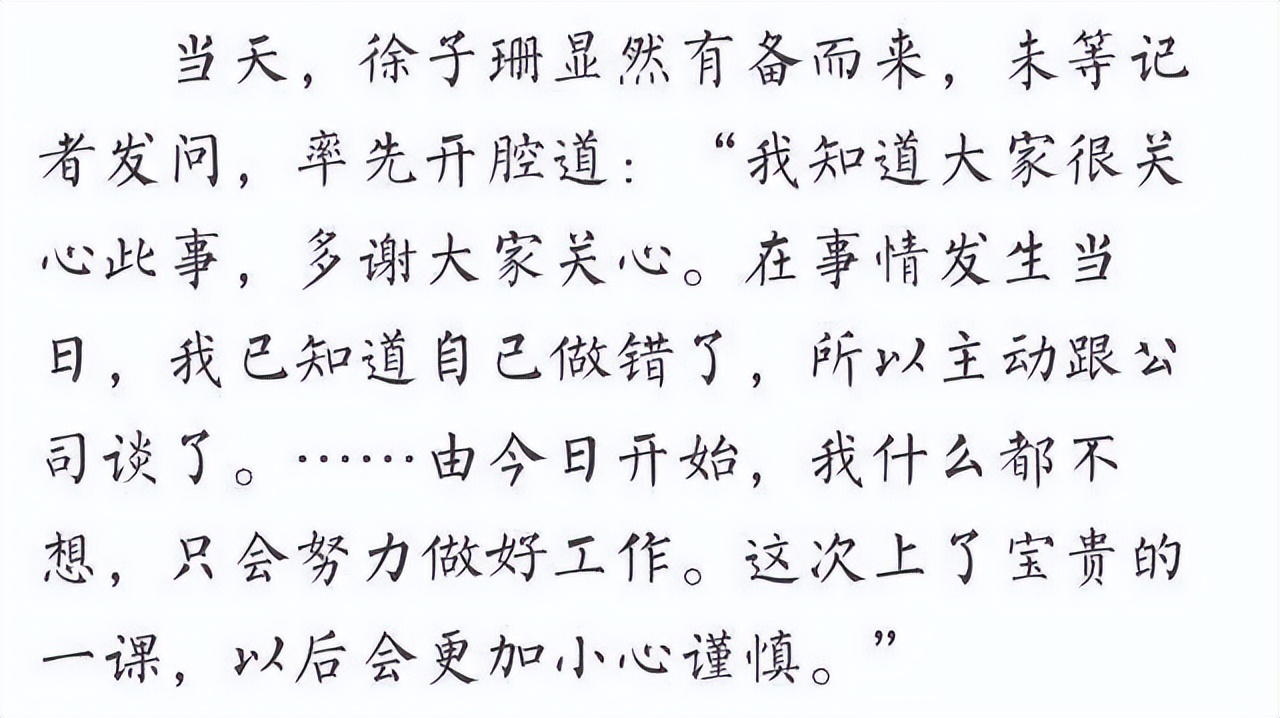 当天，徐子珊显然有备而来，未等记
者发问，率先开腔道：“我知道大家很关
心此事，多谢大家关心。在事情发生当
日，我已知道自己做错了，所以主动跟公
司谈了。……由今日开始，我什么都不
想，只会努力做好工作。这次上了宝贵的
一课，以后会更加小心谨慎。”